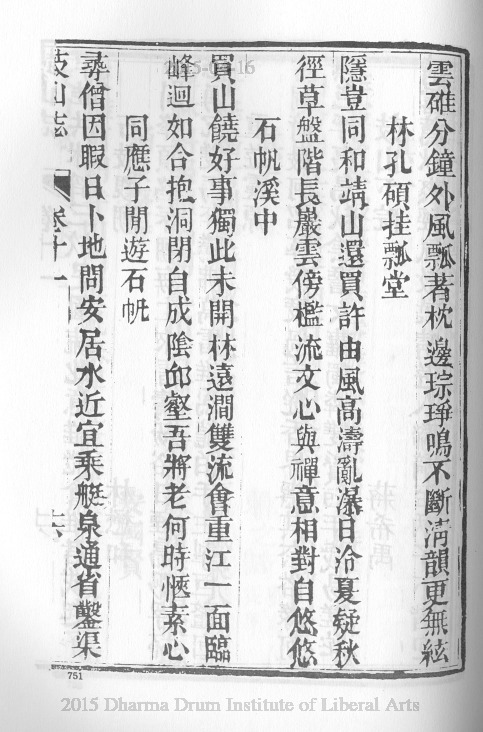 雲碓分鐘外風瓢著枕邊琮琤鳴不斷清韻更無絃
林孔碩挂瓢堂
隱豈同和靖山還買許由風高濤亂瀑日冷夏疑秋
徑草盤階長巖雲傍檻流文心與禪意相對自悠悠
石帆溪中
買山饒好事獨此未開林遠澗雙流會重江一面臨
峰迴如合抱洞閉自成陰邱壑吾將老何時愜素心
同應子閒遊石帆
尋僧因暇日卜地問安居水近宜乘艇泉通省鑿渠
卷十一 六
751
2015 Dharma Drum Institute of Liberal Arts